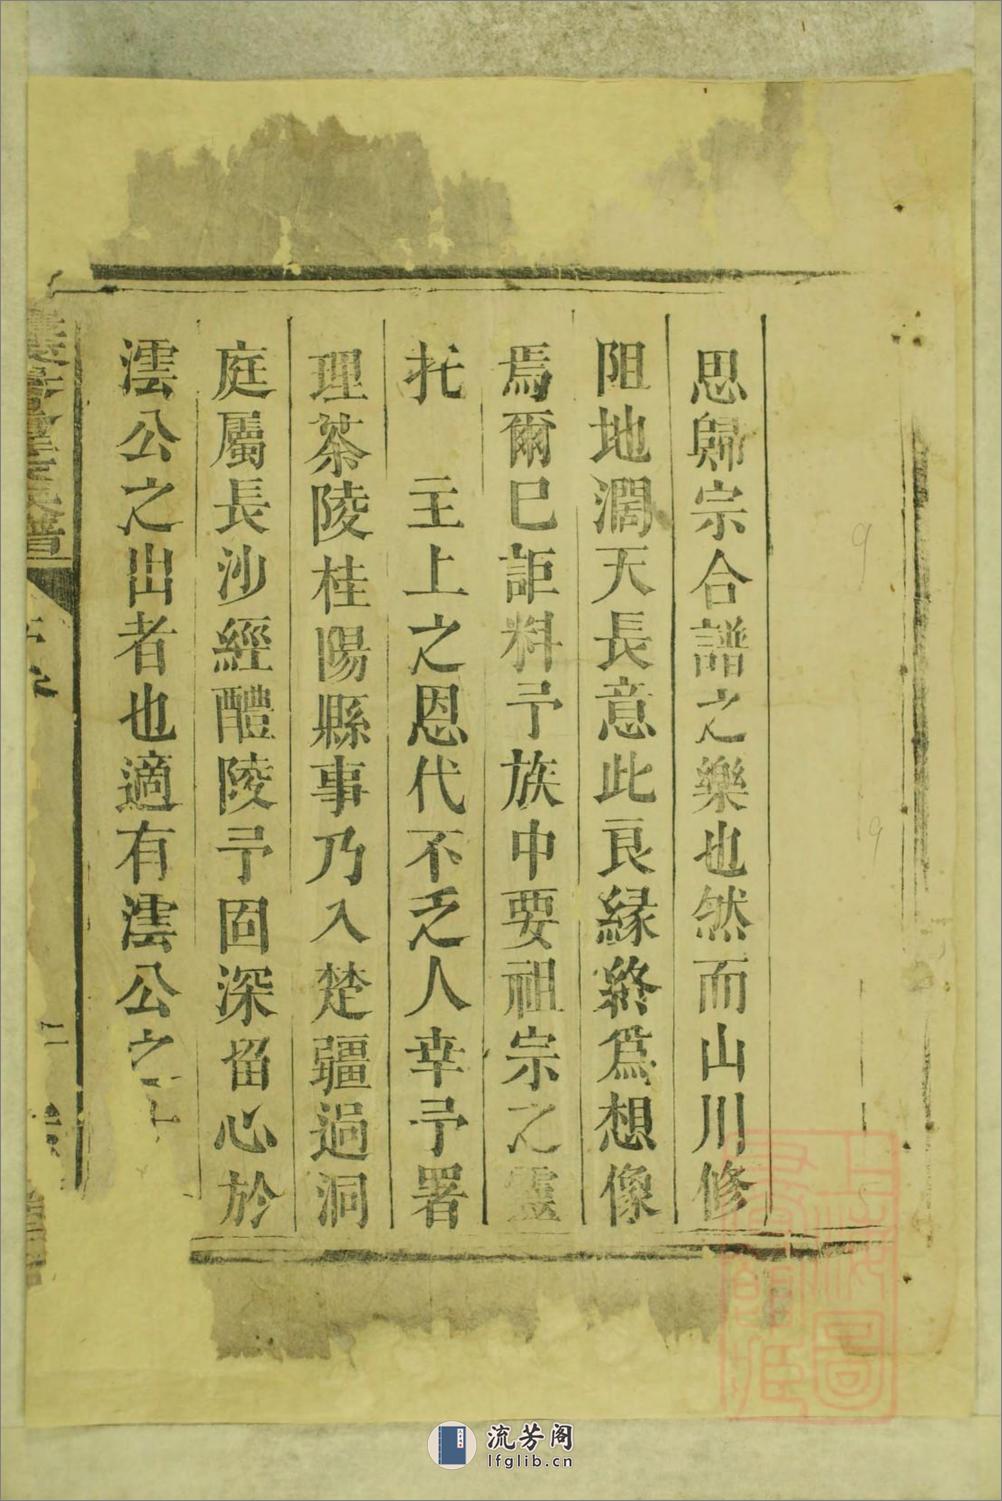 思歸宗合譜之樂也然而山川修
阻地濶天長意此良緣終爲想像
焉爾已詎料予族中要祖宗之靈
托　主上之恩代不乏人幸予署
理茶陵桂陽縣事乃入楚疆過洞
庭屬長沙經醴陵予固深畱心於
澐公之出者也適有澐公之
氏譜
二
上海圖書館藏
流芳阁
lfglib.cn